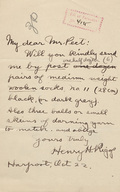 My dear Mr. Peet:
Will you kindly send
me by post one half dozen (6)
pairs of medium weight
woolen socks no. 11 (28 cm)
black, (or dark gray)
also three balls or small
skeins of darning yarn
to match, and oblige
Yours truly
Henry H. Riggs
Harpoot, Oct 2